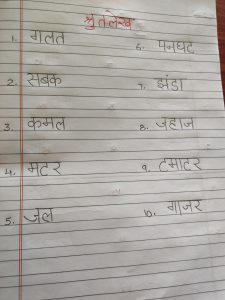 श्रुतलेख
1. गलत
2. सबक
3. कमल
4. मटर
5. जल
6. पनघट
7. झंडा
8. जहाज
9. टमाटर
10. गाजर